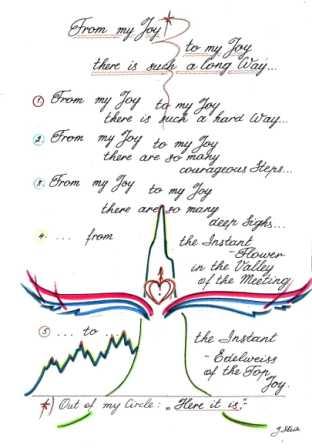 From my Joy
to my Joy
there is such a long Way...
1. From my Joy to my Joy
there is such a hard Way...
2. From my Joy to my Joy
there are so many
courageous Steps...
3. From my Joy to my Joy
there are so many
deep Sighs...
4. ... from the Instant
- Flower
in the Valley
of the Meeting
!
5 ... to ... the Instant
- Edelweiss
of the Top
Joy.
*) Out of my Circle: „Here it is“